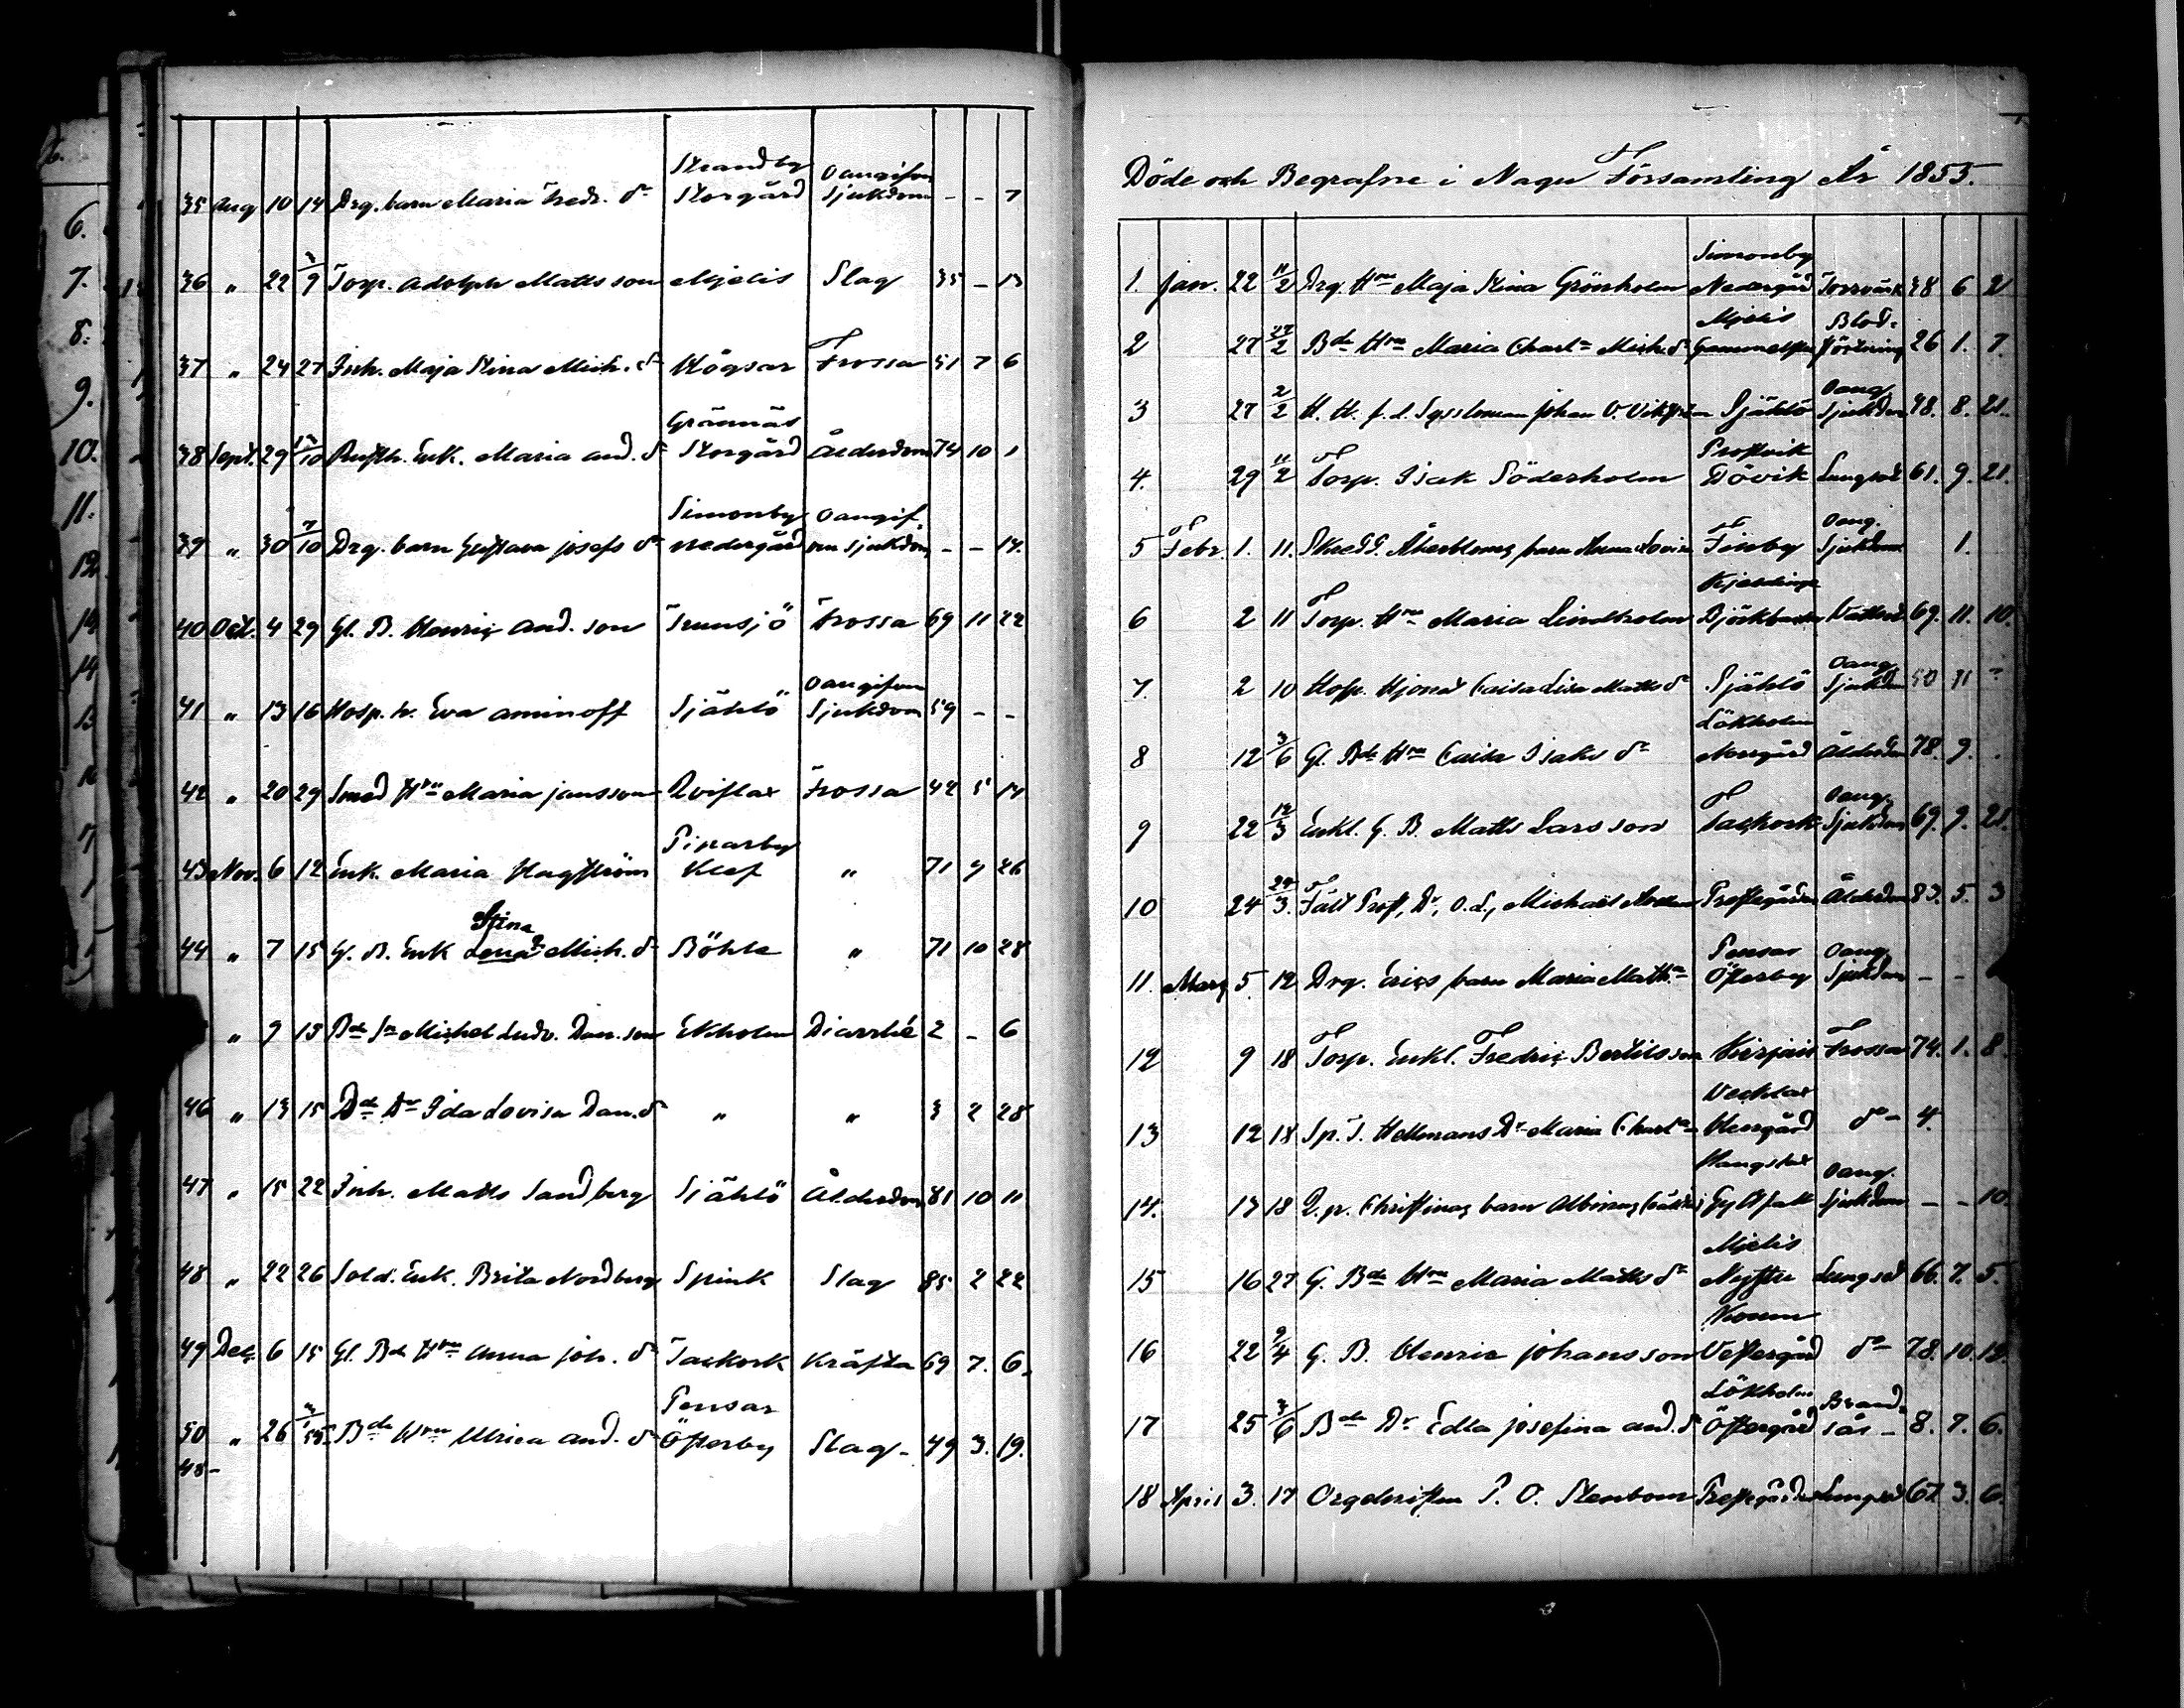 Strandby Oangifven
35 Aug 10 14 Drg. barn Maria Fredr. dr Storgård Sjukdom - - 7
36 " 22 3/9 Torp. Adolph Mattsson Mjelis Slag 35 - 13
37 " 24 27 Inh. Maja Stina Mich. dr Högsar Frossa 51 7 6
Grännäs
38 Sept. 29 /10 Rusth. Enk. Maria And. dr Storgård Ålderdom 74 10 1
Simonby Oangif
39 " 30 7/10 Drg. barn Gustava Josefs dr Nedergård ven sjukdom - - 14
40 Oct. 4 29 Gl. B. Henric And. son Trunsjö Frossa 69 11 22
Oangifven
41 " 13 16 Hosp. h. Eva Aminoff Själö Sjukdom 59 - -
42 " 20 29 Smed Hru Maria Jansson Qviflax Frossa 42 5 14
Piparby
43 Nov. 6 12 Enk. Maria Hagström Klef " 71 9 26
Stina
44 " 7 15 G. B. Enk Lena Mich. dr Böhle " 71 10 28
" 9 15 Bde Sn Michel Ludv. Dan. son Ekholm Diarrhé 2 - 6
46 " 13 15 Bde Dr Ida Lovisa Dan. dr " " 3 2 28
47 " 15 22 Inh. Matts Sandberg Själö Ålderdom 81 10 11
48 " 22 26 Sold. Enk. Brita Nordberg Spink Slag 85 2 22
49 Dec. 6 15 Gl. Bde Hru Anna Joh. dr Tackork Kräfta 69 7. 6.
Pensar
50 " 26 3/1 55. Bde Hru Ulrica And. dr Österby Slag - 49 3. 19.
48 -
Döde och Begrafne i Nagu Församling År 1855.
Simonby
1. Jan. 22 11/2 Drg. Hru Maja Stina Grönholm Nedergård Torrvärk 48 6 2
Mjelis Blod-
2 27 27/2 Bde Hru Maria Charl. Mich. dr Gammelgård förlning 26 1. 7.
Oang.
3 27 2/2 H. H. f.d. Syssloman Johan Själö Sjukdom 48. 8. 21.
Prostvik
4. 29 11/2 Torp. Isak Söderholm Dövik Lungsot 61. 9. 21.
Oang.
5 Febr. 1. 11. Skredd. Åkerbloms barn Anna Lovisa Finby Sjukdom 1.
6 2 11 Torp. Hru Maria Lindholm Björkbacka Vattsot 69. 11. 10.
Oang.
7. 2 10 Hosp. Hjonet Caisa Lisa Matts dr Själö Sjukdom 50 11 -
Lökholm
8 12 3/6 Gl. Bde Hru Caisa Isaks dr Norrgård Ålderdom 78. 9.
Oang.
9 22 12/3 Enkl. G. B. Matts Larsson Tackork Sjukdom 69. 9. 21.
10 24 24/3. Fält Prost, Dr, O. d., Michaël Prostgården Ålderdom 83. 5. 3
Pensar Oang.
11. Mars 5. 12 Drg. Erics barn Maria Math. Österby Sjukdom - -
12 9 18 Torp. Enkl. Fredric Bertilsson Kirjais Frossa 74. 1. 8.
13 12 18 Sp. T. Hellmans Dr Maria Charl. Storgård do - 4.
Oang.
14. 13 18 Q. p. Christinas barn Albinus Sjukdom - - 10.
Mjelis
15 16 27 G. Bde Hru Maria Matts dr Nygård Lungsot 66. 7. 5.
16 22 9/4 G. B. Henric Johansson Vestergård do 78. 10. 12.
Lökholm Brand-
17 25 3/6 Bde Dr Edla Josefina And. dr Östergård sår - 8. 7. 6.
18 April 3. 17 Orgelnisten P. O. Stenbom Prestgården Lungsot 67 3. 6.